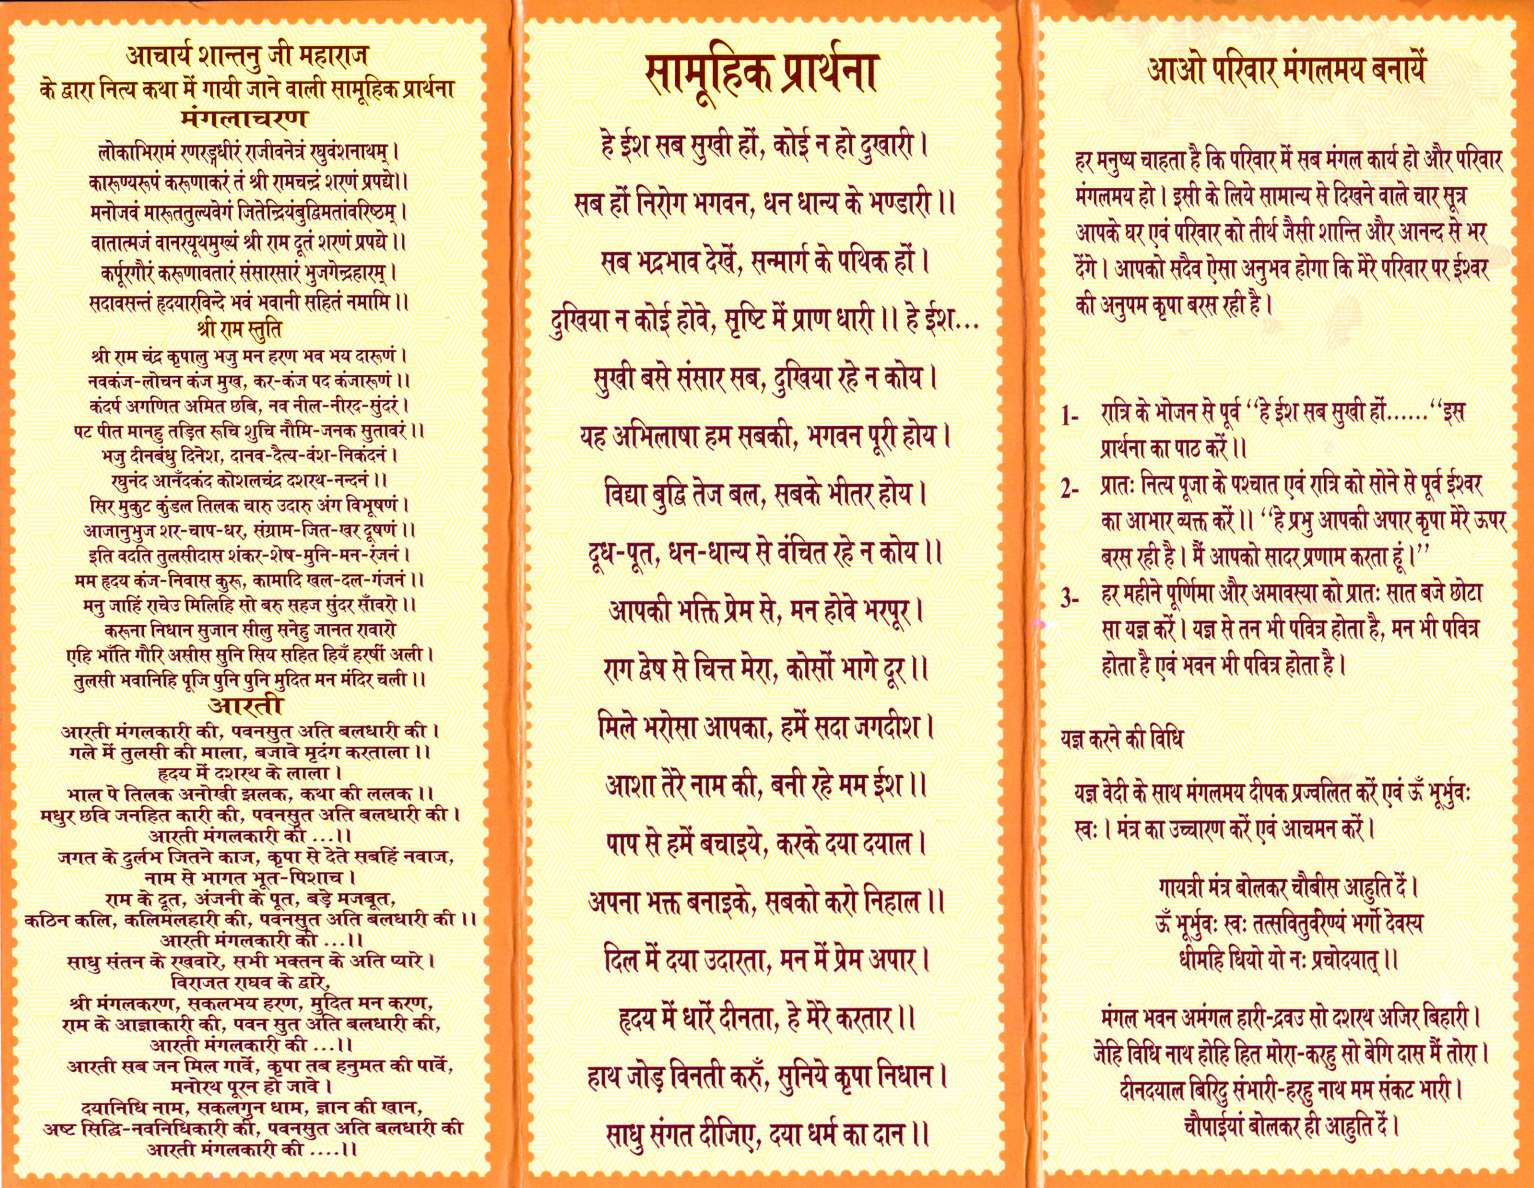 आचार्य शान्तनु जी महाराज
के द्वारा नित्य कथा में गायी जाने वाली सामूहिक प्रार्थना
मंगलाचरण
लोकाभिरामं रणरङ्गधीरं राजीवनेत्रं रघुवंशनाथम् ।
कारूण्यरूपं करूणाकरं तं श्री रामचन्द्रं शरणं प्रपद्ये।।
मनोजवं मारूततुल्यवेगं जितेन्द्रियंबुद्विमतांवरिष्ठम् ।
वातात्मजं वानरयूथमुख्यं श्री राम दूतं शरणं प्रपद्ये ।।
कर्पूरगौरं करूणावतारं संसारसारं भुजगेन्द्रहारम् ।
सदावसन्तं हृदयारविन्दे भवं भवानी सहितं नमामि ।।
श्री राम स्तुति
श्री राम चंद्र कृपालु भजु मन हरण भव भय दारूणं ।
नवकंज-लोचन कंज मुख, कर-कंज पद कंजारूणं ।।
कंदर्प अगणित अमित छबि, नव नील-नीरद-सुंदरं ।
पट पीत मानहु तड़ित रूचि शुचि नौमि-जनक सुतावरं ।।
भजु दीनबंधु दिनेश, दानव-दैत्य-वंश-निकंदनं ।
रघुनंद आनँदकंद कोशलचंद्र दशरथ-नन्दनं ।।
सिर मुकुट कुंडल तिलक चारु उदारु अंग विभूषणं ।
आजानुभुज शर-चाप-धर, संग्राम-जित-खर दूषणं ।।
इति वदति तुलसीदास शंकर-शेष-मुनि-मन-रंजनं ।
मम हृदय कंज-निवास कुरू, कामादि खल-दल-गंजनं ।।
मनु जाहिं राचेउ मिलिहि सो बरु सहज सुंदर साँवरो ।।
करूना निधान सुजान सीलु सनेहु जानत रावारो
एहि भाँति गौरि असीस सुनि सिय सहित हियँ हरषीं अली ।
तुलसी भवानिहि पूजि पुनि पुनि मुदित मन मंदिर चली ।।
आरती
आरती मंगलकारी की, पवनसुत अति बलधारी की ।
गले में तुलसी की माला, बजावे मृदंग करताला ।।
हृदय में दशरथ के लाला ।
भाल पे तिलक अनोखी झलक, कथा की ललक ।।
मधुर छवि जनहित कारी की, पवनसुत अति बलधारी की ।
आरती मंगलकारी की ...।।
जगत के दुर्लभ जितने काज, कृपा से देते सबहिं नवाज,
नाम से भागत भूत-पिशाच ।
राम के दूत, अंजनी के पूत, बड़े मजबूत,
कठिन कलि, कलिमलहारी की, पवनसुत अति बलधारी की ।।
आरती मंगलकारी की ...।।
साधु संतन के रखवारे, सभी भक्तन के अति प्यारे ।
विराजत राघव के द्वारे,
श्री मंगलकरण, सकलभय हरण, मुदित मन करण,
राम के आज्ञाकारी की, पवन सुत अति बलधारी की,
आरती मंगलकारी की ...।।
आरती सब जन मिल गावें, कृपा तब हनुमत की पावें,
मनोरथ पूरन हो जावे ।
दयानिधि नाम, सकलगुन धाम, ज्ञान की खान,
अष्ट सिद्वि-नवनिधिकारी की, पवनसुत अति बलधारी की
आरती मंगलकारी की ....।।
सामूहिक प्रार्थना
हे ईश सब सुखी हों, कोई न हो दुखारी ।
सब हों निरोग भगवन, धन धान्य के भण्डारी ।।
सब भद्रभाव देखें, सन्मार्ग के पथिक हों ।
दुखिया न कोई होवे, सृष्टि में प्राण धारी ।। हे ईश...
सुखी बसे संसार सब, दुखिया रहे न कोय ।
यह अभिलाषा हम सबकी, भगवन पूरी होय ।
विद्या बुद्वि तेज बल, सबके भीतर होय ।
दूध-पूत, धन-धान्य से वंचित रहे न कोय ।।
आपकी भक्ति प्रेम से, मन होवे भरपूर ।
राग द्वेष से चित्त मेरा, कोसों भागे दूर ।।
मिले भरोसा आपका, हमें सदा जगदीश ।
आशा तेरे नाम की, बनी रहे मम ईश ।।
पाप से हमें बचाइये, करके दया दयाल ।
अपना भक्त बनाइके, सबको करो निहाल ।।
दिल में दया उदारता, मन में प्रेम अपार ।
हृदय में धारें दीनता, हे मेरे करतार ।।
हाथ जोड़ विनती करुँ, सुनिये कृपा निधान ।
साधु संगत दीजिए, दया धर्म का दान ।।
आओ परिवार मंगलमय बनायें
हर मनुष्य चाहता है कि परिवार में सब मंगल कार्य हो और परिवार
मंगलमय हो । इसी के लिये सामान्य से दिखने वाले चार सूत्र
आपके घर एवं परिवार को तीर्थ जैसी शान्ति और आनन्द से भर
देंगे । आपको सदैव ऐसा अनुभव होगा कि मेरे परिवार पर ईश्वर
की अनुपम कृपा बरस रही है ।
1- रात्रि के भोजन से पूर्व ‘‘हे ईश सब सुखी हों......‘‘इस
प्रार्थना का पाठ करें ।।
2- प्रातः नित्य पूजा के पश्चात एवं रात्रि को सोने से पूर्व ईश्वर
का आभार व्यक्त करें ।। ‘‘हे प्रभु आपकी अपार कृपा मेरे ऊपर
बरस रही है । मैं आपको सादर प्रणाम करता हूं ।’’
3- हर महीने पूर्णिमा और अमावस्या को प्रातः सात बजे छोटा
सा यज्ञ करें । यज्ञ से तन भी पवित्र होता है, मन भी पवित्र
होता है एवं भवन भी पवित्र होता है ।
यज्ञ करने की विधि
यज्ञ वेदी के साथ मंगलमय दीपक प्रज्वलित करें एवं ऊँ भूर्भुवः
स्वः । मंत्र का उच्चारण करें एवं आचमन करें ।
गायत्री मंत्र बोलकर चौबीस आहुति दें ।
ऊँ भूर्भुवः स्वः तत्सवितुर्वरेण्यं भर्गो देवस्य
धीमहि धियो यो नः प्रचोदयात् ।।
मंगल भवन अमंगल हारी-द्रवउ सो दशरथ अजिर बिहारी ।
जेहि विधि नाथ होहि हित मोरा-करहु सो बेगि दास मैं तोरा ।
दीनदयाल बिरिदु संभारी-हरहु नाथ मम संकट भारी ।
चौपाईयां बोलकर ही आहुति दें ।